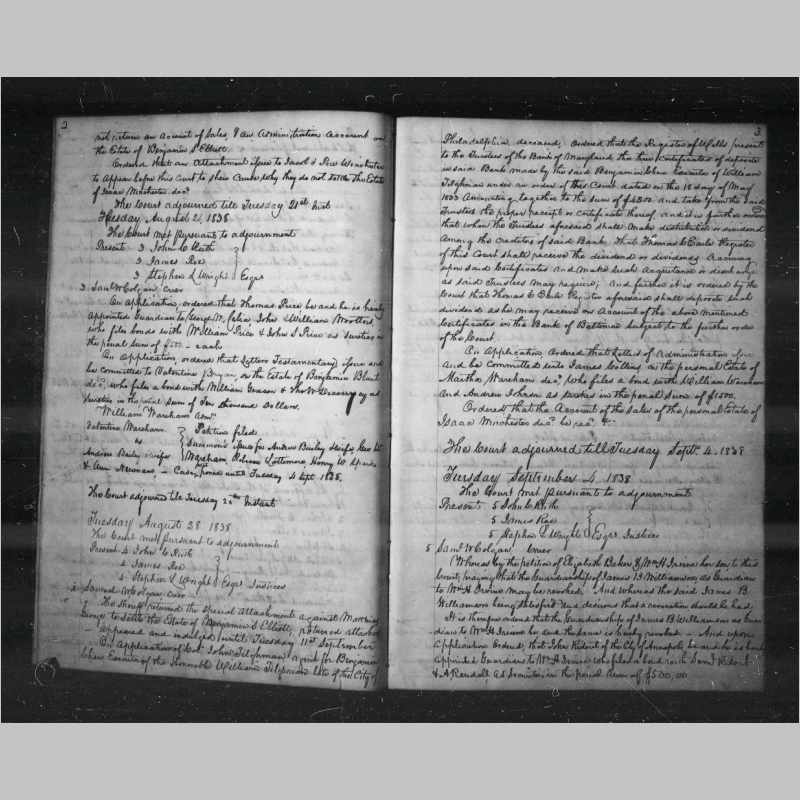 2
not return an Account of Sales, & an Administration Account on
the Estate of Benjamin S Elliott.
Ordered that an Attachment issue to Jacob &
to Appear before this Court to show Cause why they do not settle the Estate
of Isaac Winchester decd
The Court adjourned till Tuesday 21st Inst
Tuesday August 21, 1838
The Court met pursuant to adjournment
Present 3 John C
3 James Roe
3 Stephen L Wright Esqrs
3 Saml W Colgan Crier
On application, ordered that Thomas Price be and he is hereby
appointed Guardian to George W, Celia John & William Wootters
who files bonds with William Price & John S Price as Sureties in
the penal sum of $500 - each
On Application, ordered that Letters Testamentary issue and
be committed to Valentine Bryan, on the Estate of Benjamin Blunt
decd, who files a bond with William Grason & Thos W as
Sureties in the penal sum of Ten thousand dollars.
William Wareham
Valentine Wareham
vs
Andrew Bailey & wife
& Ann Newnam
Petition filed
Summons issue for Andrew Bailey & wife,
Wareham, Lattomore, Henry W
- Case postponed until Tuesday 4 Sept 1838.
The Court adjourned till Tuesday 28th Instant
Tuesday August 28 1838
The Court met pursuant to adjournment
Present 4 John C
4 James Roe
4 Stephen L Wright Esqrs Justices
4 Samuel W Colgan Crier
The Sheriff returned the special attachment against
to settle the Estate of Benjamin S Elliott, returned attached
- appeared and indulged until Tuesday 11st September
On Application of Col. John Tilghman agent for Benjamin
Executor of the Honorable William Tilghman late of the City of
3
Philadelphia deceased; ordered that the Register of Wills present
to the Trustees of the Bank of Maryland the two Certificates of deposite
in said Bank made by the said Benjamin Executor of William
Tilghman under an order of this Court dated on the 18 day of May
1833 Amounting together to the sum of and take from the said
Trustees the proper receipt or Certificate thereof, and it is further ordered
that when the Trustees aforesaid shall make distribution or dividend
Among the creditors of said Bank, that Thomas C Earle Register
of this Court shall receive the dividend or dividends Accruing
upon said Certificates and make such Acquittance or discharge
as said Trustees may require; and further it is ordered by the
Court that Thomas C Earle Register aforesaid shall deposite such
dividend as he may receive on Account of the above mentioned
Certificates in the Bank of Baltimore subject to the further order
of the Court
On Application, Ordered that Letters of Administration issue
and be committed unto James Collins on the personal Estate of
Martha Wareham decd, who files a bond with William Wareham
and Andrew Johnson as sureties in the penal sum of $1500.
Ordered that the Account of the Sales of the personal Estate of
Isaac Winchester decd be recd &c
The Court adjourned till Tuesday Sept. 4. 1838
Tuesday September 4. 1838
The Court met pursuant to adjournment
Present 5 John C
5 James Roe
5 Stephen L Wright Esqrs Justices
5 Saml W Colgan Crier
Whereas by the petition of Elizabeth Baker & Wm H Irvine her son to this
Court, praying that the Guardianship of James B Williamson, as Guardian
to Wm H Irvine may be revoked. And whereas the said James B.
Williamson being satisfied and desirous that a revocation should be had,
It is therefore ordered that the Guardianship of James B Williamson as Guar
dian to Wm H Irvine be and the same is hereby revoked - And upon
Application Ordered, that John Ridout of the City of Annapolis be and he is hereby
appointed Guardian to Wm H Irvine who files a bond with Saml Ridout
& A Randall as Securities in the penal sum of $500,00